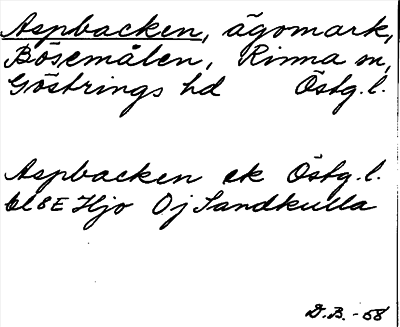 Aspbacken, ägomark,
Bösemålen, Rinna sn,
Göstrings hd Östg.l.
Aspbacken ek Östg.l.
8E Hjo Oj Sandkulla
D.B. -68